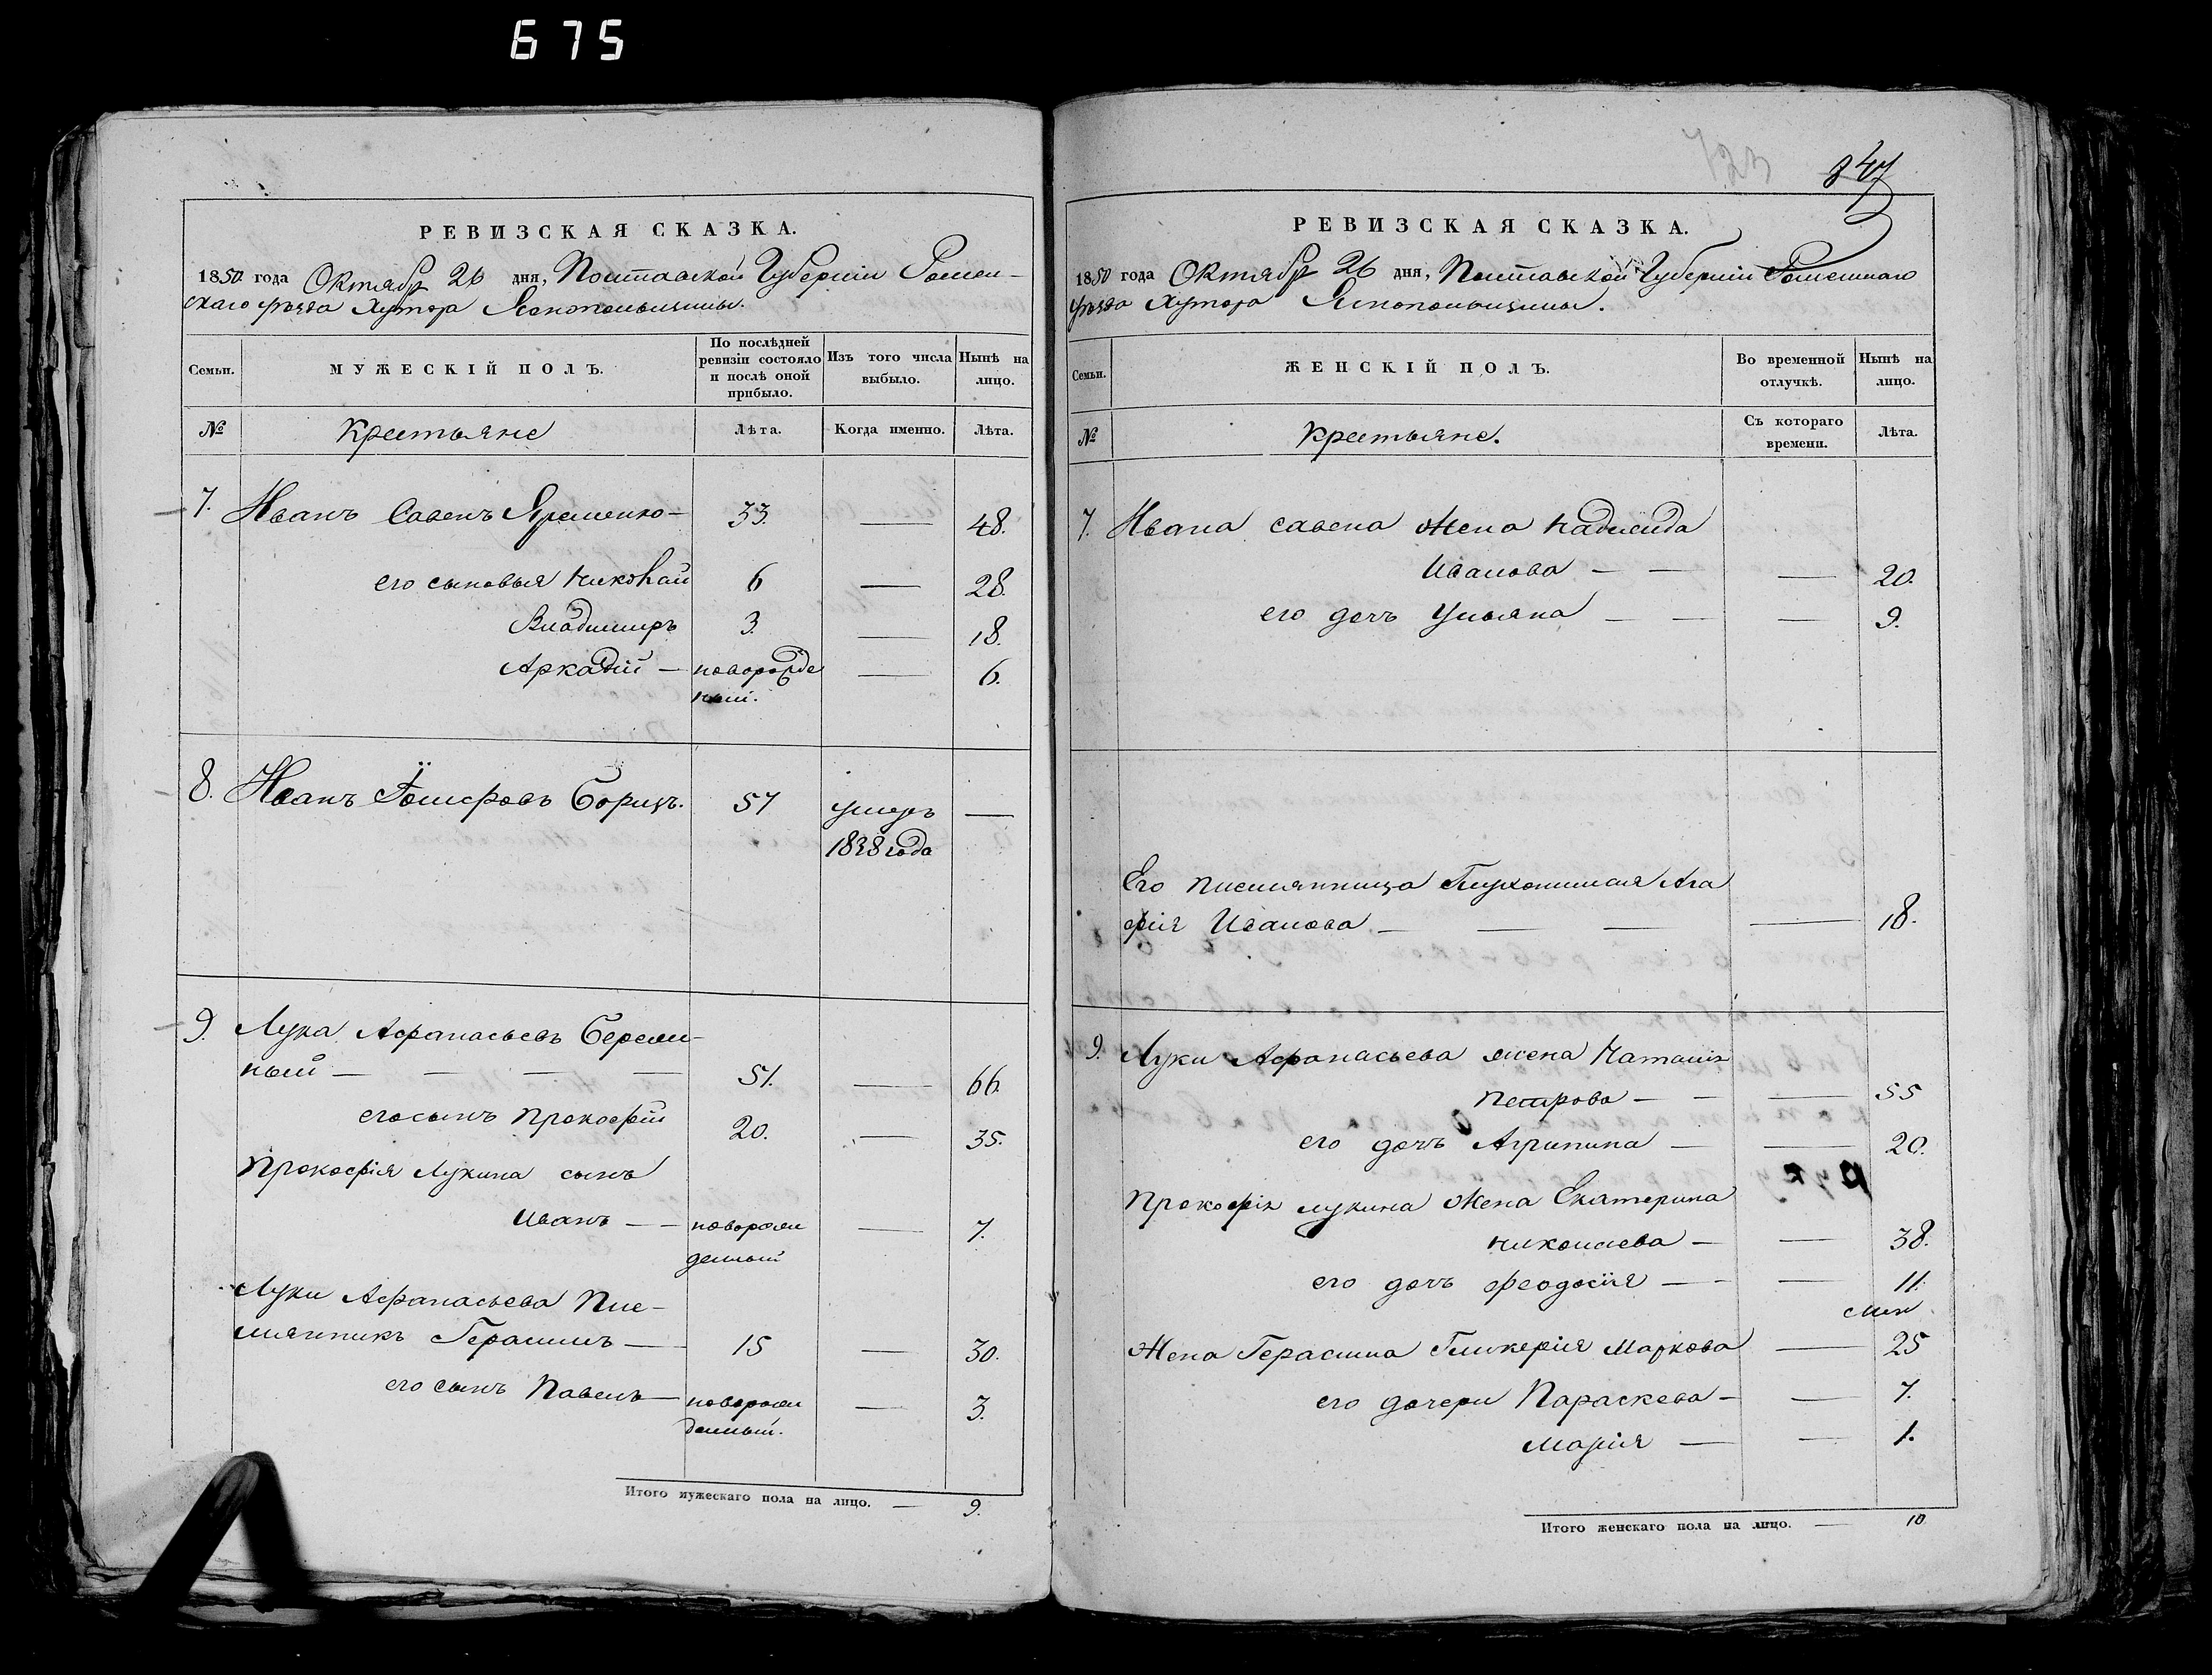 675
РЕВИЗСКАЯ СКАЗКА.
1850 года Октябр 26 дня, Полтавской Губерніи Ромен-
скаго уѣзда Хутора
Семьи.
МУЖЕСКІЙ ПОЛЪ.
По послѣдней ревизіи состояло и послѣ оной прибыло.
Изъ того числа выбыло.
Нынѣ на лицо.
№
Крестьяне
Лѣта.
Когда именно.
Лѣта.
7. Иванъ Савенъ Яременко- 33. — 48.
его сыновья Николай 6 — 28.
Владимиръ 3. — 18.
Аркадій — новорожде — 6.
ный.
8. Иванъ Борицъ. 57 умеръ —
1838 года
9. Лука Афанасьевъ Береж-
ный — — — — 51. — 66.
его сынъ Прокофій 20. — 35.
Прокофія Лукина сынъ
Иванъ — — новорож — 7.
денный
Луки Афанасьева Пле-
мянникъ Герасимъ — 15 — 30.
его сынъ Павелъ — новорож — 3.
денный.
Итого мужескаго пола на лицо. — 9.
723
847
РЕВИЗСКАЯ СКАЗКА.
1850 года Октябр 26 дня, Полтавской Губерніи Роменнаго
уѣзда Хутора
Семьи.
ЖЕНСКІЙ ПОЛЪ.
Во временной отлучкѣ.
Нынѣ на лицо.
№
Крестьяне.
Съ котораго времени.
Лѣта.
7. Ивана савена Жена надежда
Иванова — — — 20.
его дочь Ульяна — — — 9.
Его племянница Глухонимая Ага
фія Иванова — — — — 18.
9. Луки Афанасьева жена Наталія
Петрова — — — 55
его дочь Агрипина — — 20.
Прокофія лукина Жена Екатерина
николаева — — 38.
его дочь феодосія — — — 11.
Жена Герасима Гликерія Маркова — 25
его дочери Параскева — — 7.
Марія — — 1.
Итого женскаго пола на лицо. — 10